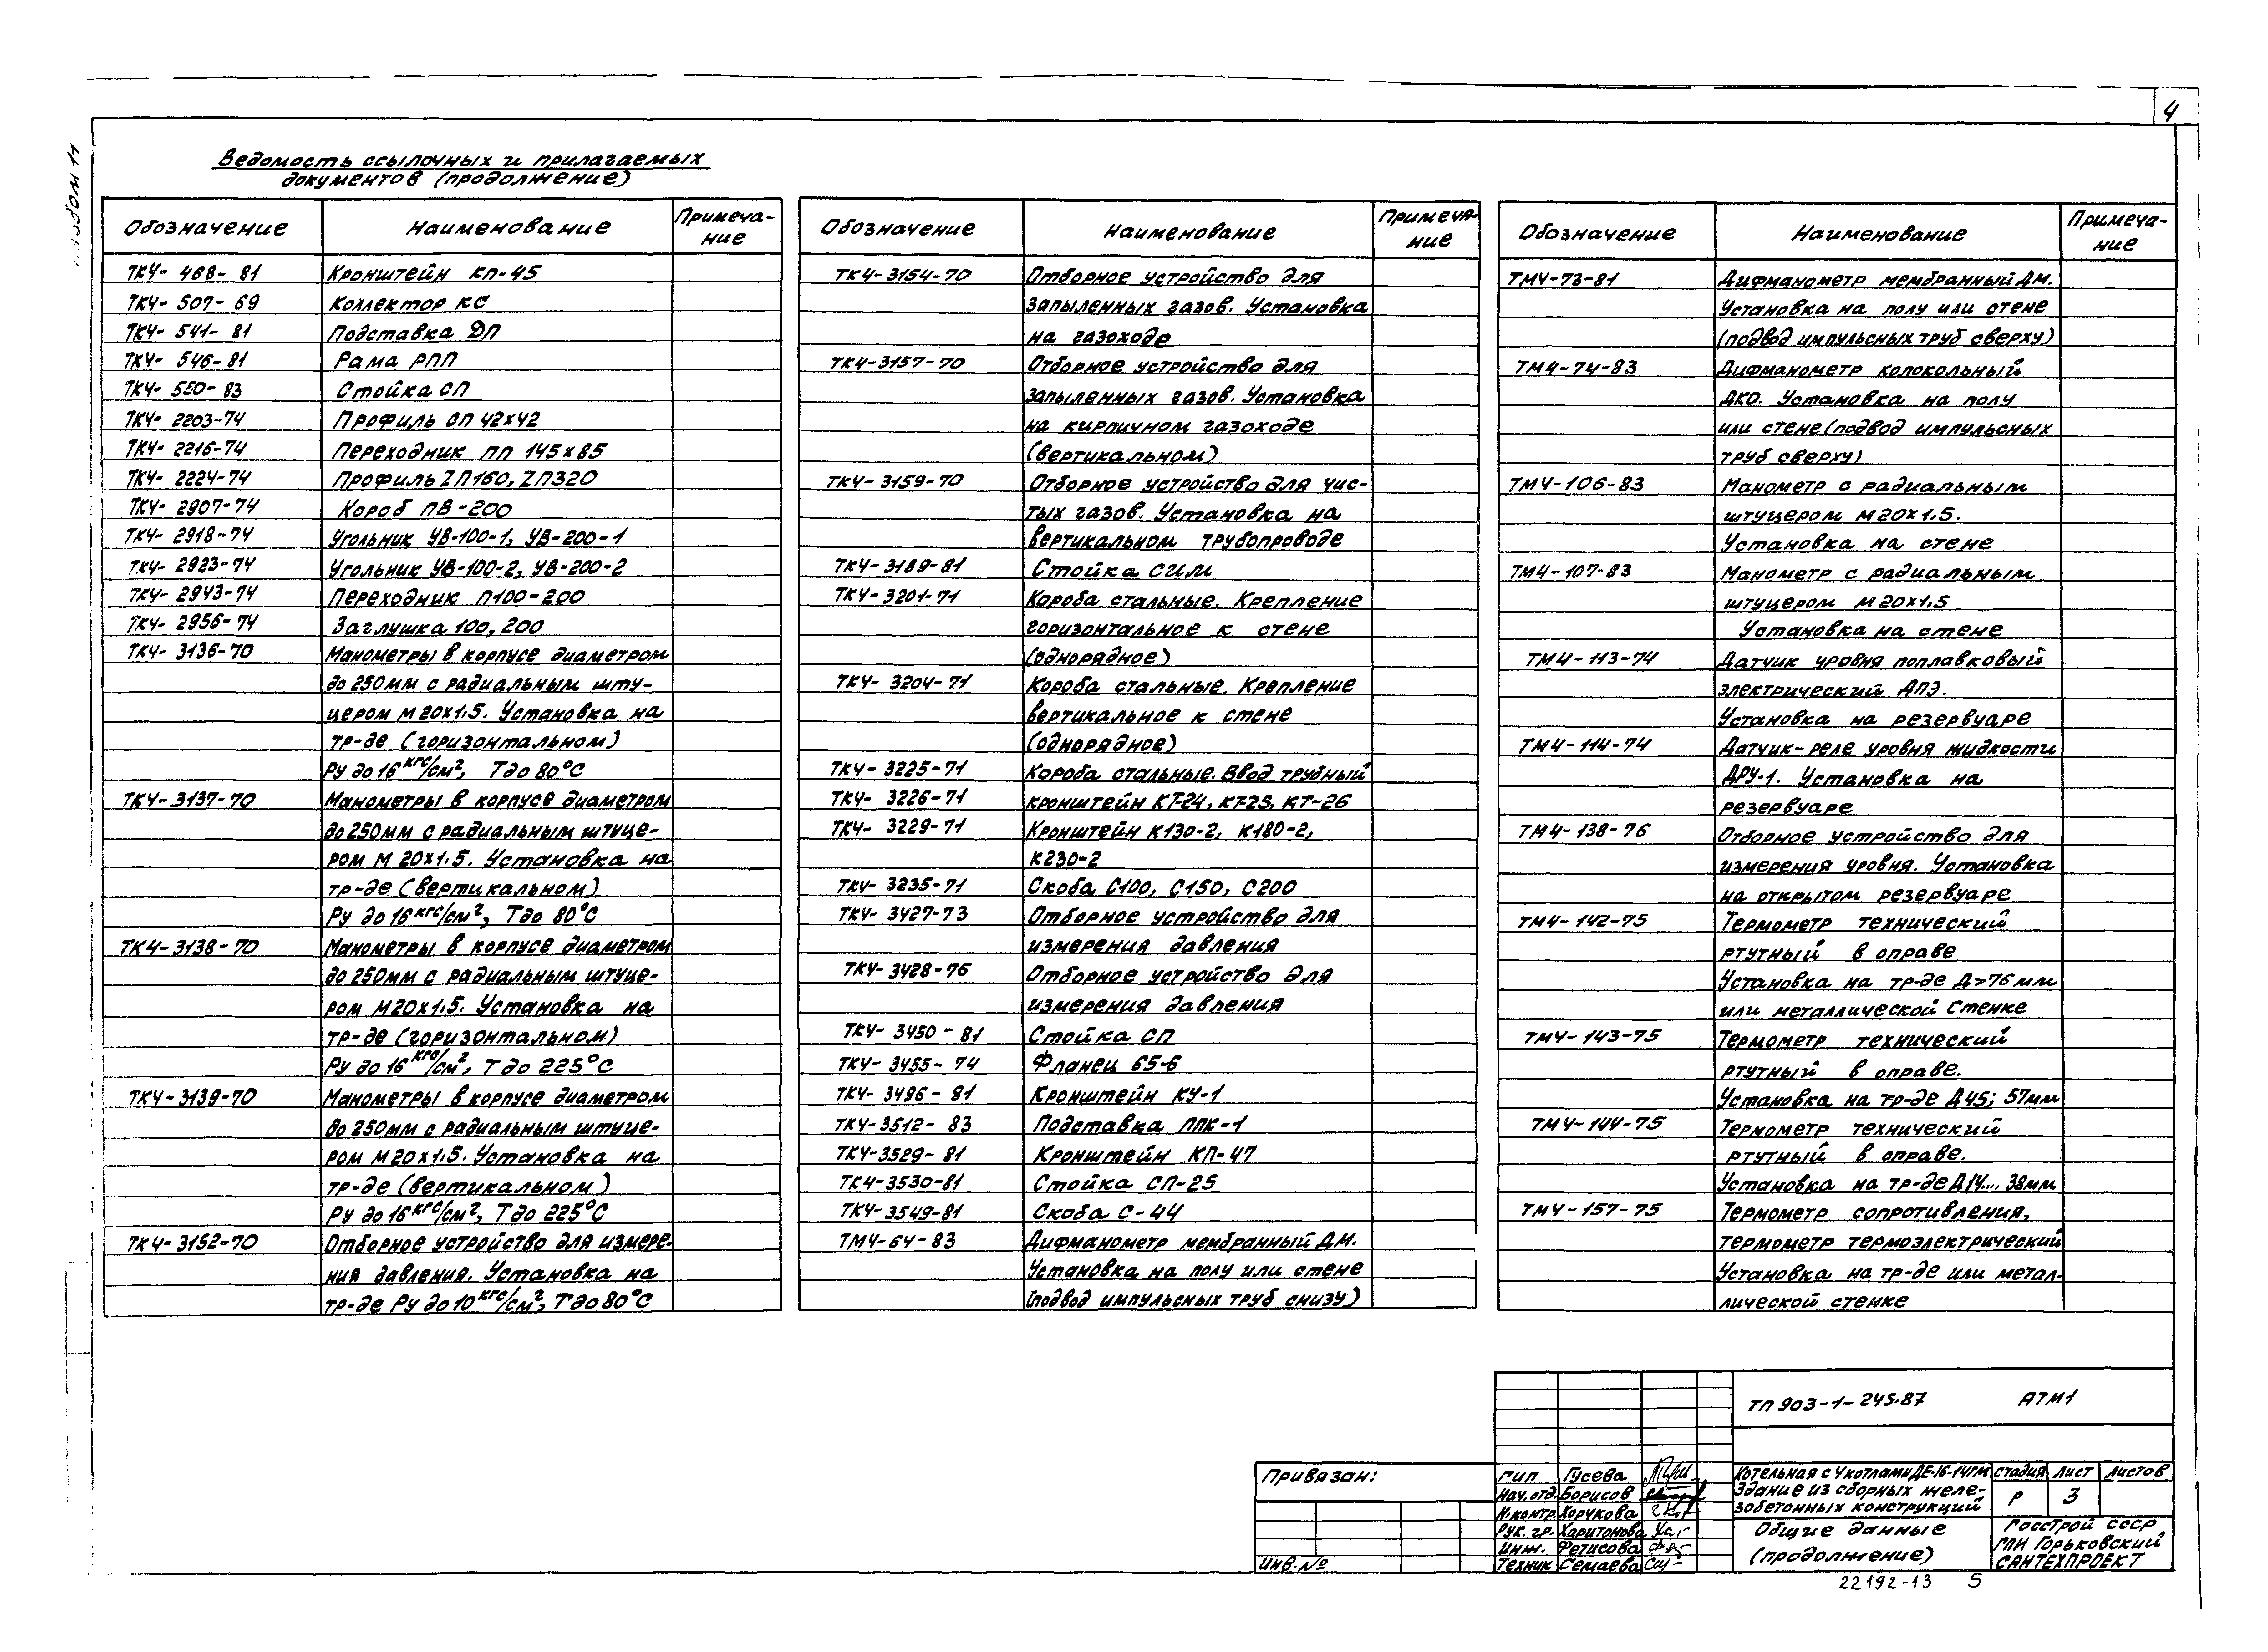 4
Альбом 11
Ведомость ссылочных и прилагаемых
документов (продолжение)
Обозначение Наименование Примеча-
ние
ТК4- 468- 81 Кронштейн КП-45
ТК4- 507- 69 Коллектор КС
ТК4- 541- 81 Подставка ДП
ТК4- 546-81 Рама РПП
ТК4- 550- 83 Стойка СП
ТК4- 2203-74 Профиль СП 42х42
ТК4- 2216-74 Переходник ПП 145х85
ТК4- 2224-74 Профиль ZП160, ZП320
ТК4- 2907-74 Короб ПВ-200
ТК4- 2918-74 Угольник УВ-100-1, УВ-200-1
ТК4- 2923-74 Угольник УВ-100-2, УВ-200-2
ТК4- 2943-74 Переходник П100-200
ТК4- 2956-74 Заглушка 100, 200
ТК4- 3136-70 Манометры в корпусе диаметром
до 250мм с радиальным шту-
цером М20х1,5. Установка на
тр-де (горизонтальном)
Ру до 16 кгс/см², Т до 80°С
ТК4-3137-70 Манометры в корпусе диаметром
до 250мм с радиальным штуце-
ром М 20х1,5. Установка на
тр-де (вертикальном)
Ру до 16 кгс/см², Т до 80°С
ТК4-3138-70 Манометры в корпусе диаметром
до 250мм с радиальным штуце-
ром М20х1,5. Установка на
тр-де (горизонтальном)
Ру до 16 кгс/см², Т до 225°С
ТК4-3139-70 Манометры в корпусе диаметром
до 250мм с радиальным штуце-
ром М20х1,5. Установка на
тр-де (вертикальном)
Ру до 16 кгс/см², Т до 225°С
ТК4-3152-70 Отборное устройство для измере-
ния давления. Установка на
тр-де Ру до 10 кгс/см², Т до 80°С
Обозначение Наименование Примеча-
ние
ТК4-3154-70 Отборное устройство для
запыленных газов. Установка
на газоходе
ТК4-3157-70 Отборное устройство для
запыленных газов. Установка
на кирпичном газоходе
(вертикальном)
ТК4-3159-70 Отборное устройство для чис-
тых газов. Установка на
вертикальном трубопроводе
ТК4-3189-81 Стойка СИМ
ТК4-3201-71 Короба стальные. Крепление
горизонтальное к стене
(однорядное)
ТК4- 3204-71 Короба стальные. Крепление
вертикальное к стене
(однорядное)
ТК4- 3225-71 Короба стальные. Ввод трубный
ТК4- 3226-71 Кронштейн КТ-24, КТ-25, КТ-26
ТК4- 3229-71 Кронштейн К130-2, К180-2,
К230-2
ТК4- 3235-71 Скоба С100, С150, С200
ТК4- 3427-73 Отборное устройство для
измерения давления
ТК4-3428-76 Отборное устройство для
измерения давления
ТК4- 3450 - 81 Стойка СП
ТК4- 3455- 74 Фланец 65-6
ТК4- 3496- 81 Кронштейн КУ-1
ТК4-3512- 83 Подставка ППК-1
ТК4-3529- 81 Кронштейн КП-47
ТК4-3530-81 Стойка СП-25
ТК4-3549-81 Скоба С-44
ТМ4-64-83 Дифманометр мембранный ДМ.
Установка на полу или стене
(подвод импульсных труб снизу)
Обозначение Наименование Примеча-
ние
ТМ4-73-81 Дифманометр мембранный ДМ.
Установка на полу или стене
(подвод импульсных труб сверху)
ТМ4-74-83 Дифманометр колокольный
ДКО. Установка на полу
или стене (подвод импульсных
труб сверху)
ТМ4-106-83 Манометр с радиальным
штуцером М20х1,5.
Установка на стене
ТМ4-107-83 Манометр с радиальным
штуцером М20х1,5
Установка на стене
ТМ4-113-74 Датчик уровня поплавковый
электрический ДПЭ.
Установка на резервуаре
ТМ4-114-74 Датчик-реле уровня жидкости
ДРУ-1. Установка на
резервуаре
ТМ4-138-76 Отборное устройство для
измерения уровня. Установка
на открытом резервуаре
ТМ4-142-75 Термометр технический
ртутный в оправе
Установка на тр-де Д>76мм
или металлической стенке
ТМ4-143-75 Термометр технический
ртутный в оправе.
Установка на тр-де Д45; 57мм
ТМ4-144-75 Термометр технический
ртутный в оправе.
Установка на тр-де Д14..., 38мм
ТМ4-157-75 Термометр сопротивления,
термометр термоэлектрический
Установка на тр-де или метал-
лической стенке
ТП 903-1-245.87 АТМ1
Привязан:
Инв.№
ГИП Гусева
Нач.отд. Борисов
Н.контр. Корчкова
Рук. гр. Харитонова
Инж. Фетисова
Техник Семаева
Котельная с 4 котлами ДЕ-16-14ГМ
Здание из сборных желе-
зобетонных конструкций
Стадия Лист Листов
Р 3
Общие данные
(продолжение)
Госстрой СССР
ГПИ Горьковский
САНТЕХПРОЕКТ
22192-13 5